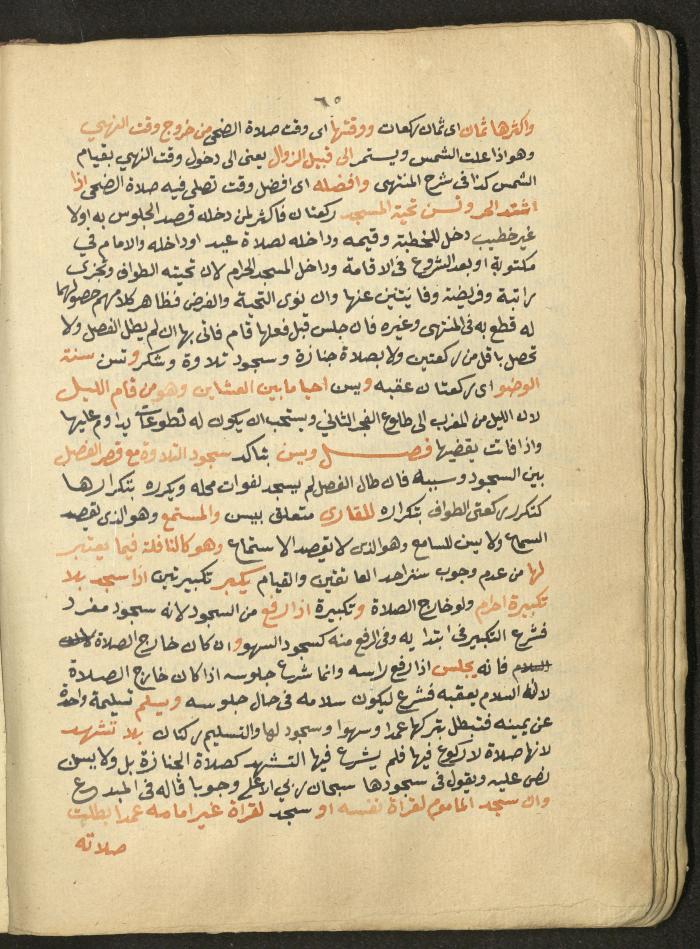 ٦٥
واكثرها ثمان اى ثمان ركعات ووقتها اى وقت صلاة الضحى من خروج وقت النهي
وهو اذا علت الشمس ويستمر الى قبيل الزوال يعنى الى دخول وقت النهي بقيام
الشمس كذا فى شرح المنتهى وافضله اى افضل وقت تصلى فيه صلاة الضحى اذا
اشتد الحر وتسن تحية المسجد ركعتان فاكثر لمن دخله قصد الجلوس به اولا
غير خطيب دخل للخطبة وقيمه وداخله لصلاة عيد اوداخله والامام في
مكتوبة او بعد الشروع فى الاقامة وداخل المسجد الحرام لان تحيته الطواف وتجزى
راتبة وفريضة وفايتتين عنها وان نوى التحية والفرض فظاهر كلامهم حصولهما
له قطع به فى المنتهى وغيره فان جلس قبل فعلها قام فاتى بها ان لم يطل الفصل ولا
تحصل باقل من ركعتين ولا بصلاة جنازة وسجود تلاوة وشكر وتسن سنة
الوضو اى ركعتان عقبه ويسن احيا ما بين العشاين وهو من قيام الليل
لان الليل من المغرب الى طلوع الفجر الثاني ويستحب ان يكون له تطوعات يداوم عليها
واذا فاتت يقضيها فصل ويسن بتاكد سجود التلاوة مع قصر الفصل
بين السجود وسببه فان طال الفصل لم يسجد لفوات محله ويكرره بتكرارها
كتكرر ركعتى الطواف بتكراره للقارى متعلق بيسن والمستمع وهو الذى يقصد
السماع ولا يسن للسامع وهو الذى لا يقصد الاستماع وهو كالنافلة فيما يعتبر
لها من عدم وجوب ستر احد العاتقين والقيام يكبر تكبيرتين اذا سجد بلا
تكبيرة احرام ولو خارج الصلاة وتكبيرة اذا رفع من السجود لانه سجود مفرد
فشرع التكبير فى ابتدايه وفى الرفع منه كسجود السهو وان كان خارج الصلاة
فانه يجلس اذا رفع راسه وانما شرع جلوسه اذا كان خارج الصلاة
لانه السلام يعقبه فشرع ليكون سلامه فى حال جلوسه ويسلم تسليمة واحدة
عن يمينه فتبطل بتركها عمدا وسهوا وسجود لها والتسليم ركنان بلا تشهد
لانها صلاة لا ركوع فيها فلم يشرع فيها التشهد كصلاة الجنازة بل ولا يسن
نص عليه ويقول فى سجودها سبحان ربي الاعلى وجوبا قاله فى المبدع
وان سجد الماموم لقراة نفسه او سجد لقراة غير امامه عمدا بطلت
صلاته